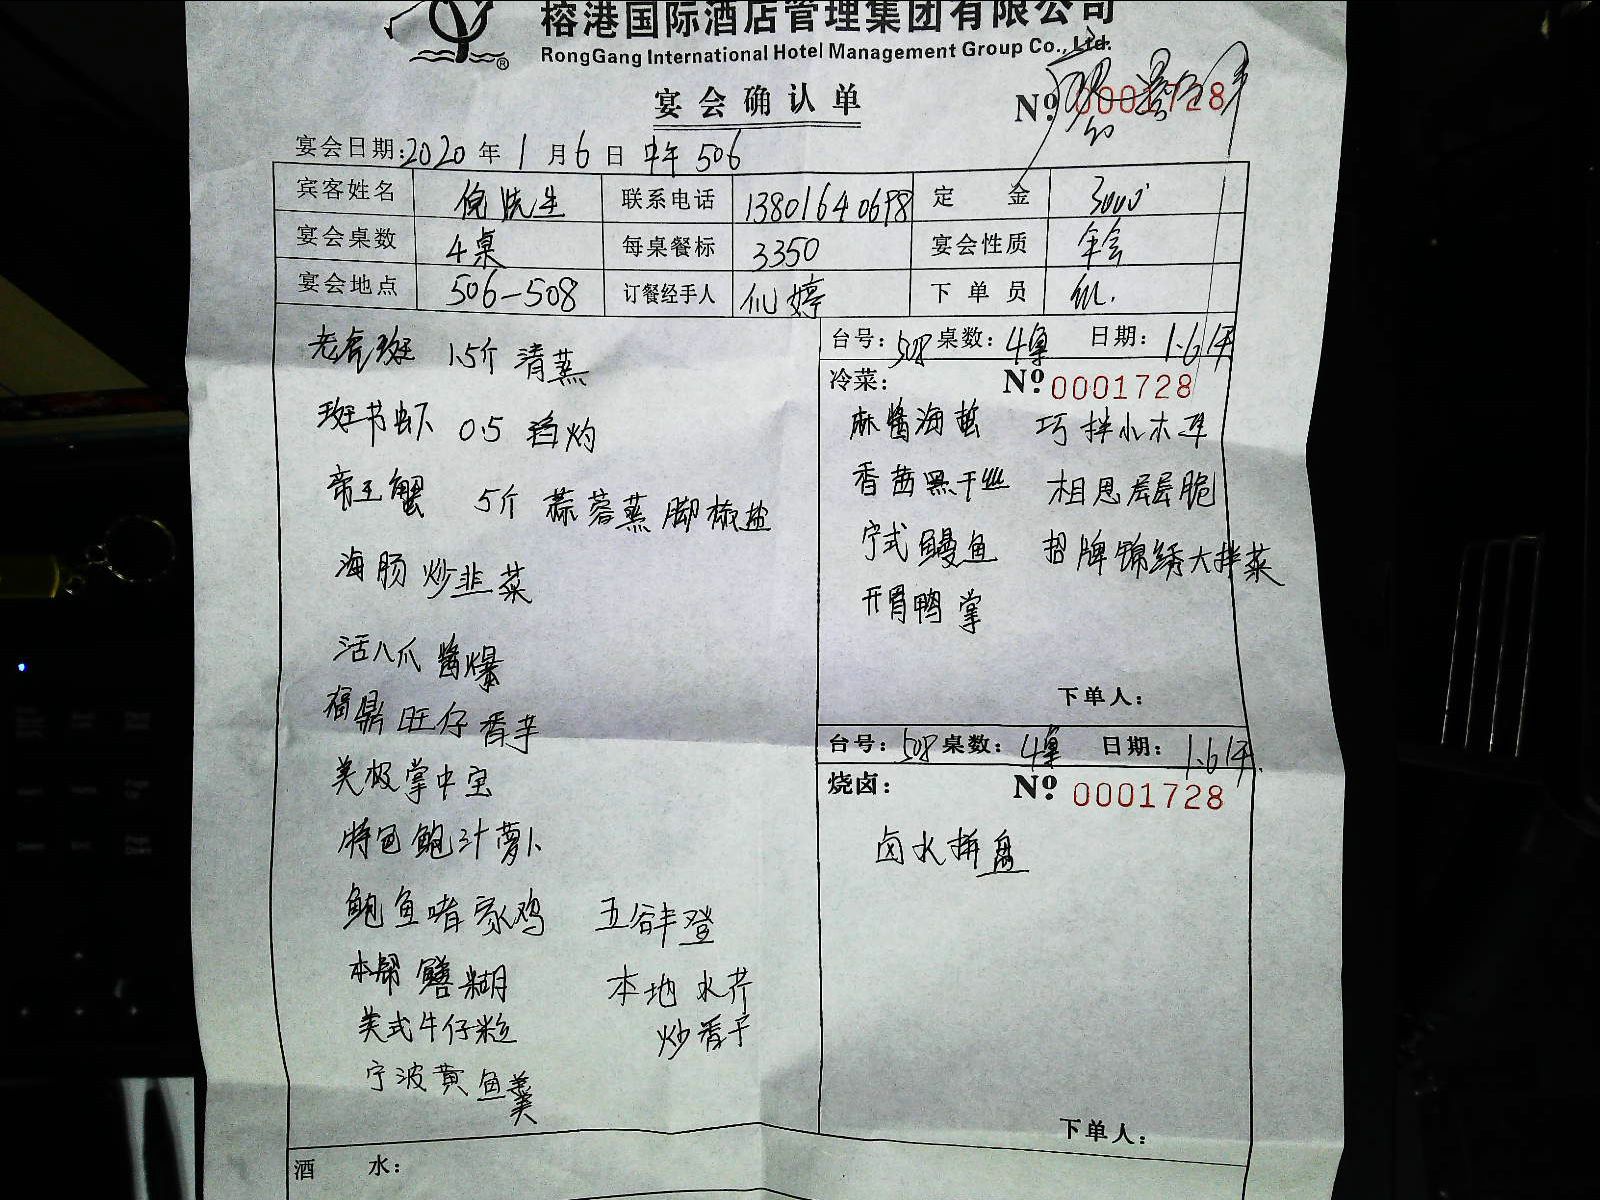 榕港国际酒店管理集团有限公司
RongGang International Hotel Management Group Co., Ltd.
宴会确认单
№ 0001728
宴会日期:2020年1月6日 中午 506
宾客姓名 倪先生 联系电话 13801640698 定金 3000
宴会桌数 4桌 每桌餐标 3350 宴会性质 年会
宴会地点 506-508 订餐经手人 仙婷 下单员
老虎斑 1.5斤 清蒸
斑节虾 0.5 白灼
帝王蟹 5斤 蒜蓉蒸 脚椒盐
海肠炒韭菜
活八爪 酱爆
福鼎旺仔香芋
美极掌中宝
特色鲍汁萝卜
鲍鱼啫家鸡
本帮鳝糊
美式牛仔粒
宁波黄鱼羹
五谷丰登
本地水芹
炒香干
台号: 508 桌数: 4桌 日期: 1.6午
冷菜: № 0001728
麻酱海蜇 巧拌小木耳
香茜黑干丝 相思层层脆
宁式鳗鱼 招牌锦绣大拌菜
开胃鸭掌
下单人:
台号: 508 桌数: 4桌 日期: 1.6午
烧卤: № 0001728
卤水拼盘
下单人:
酒水: